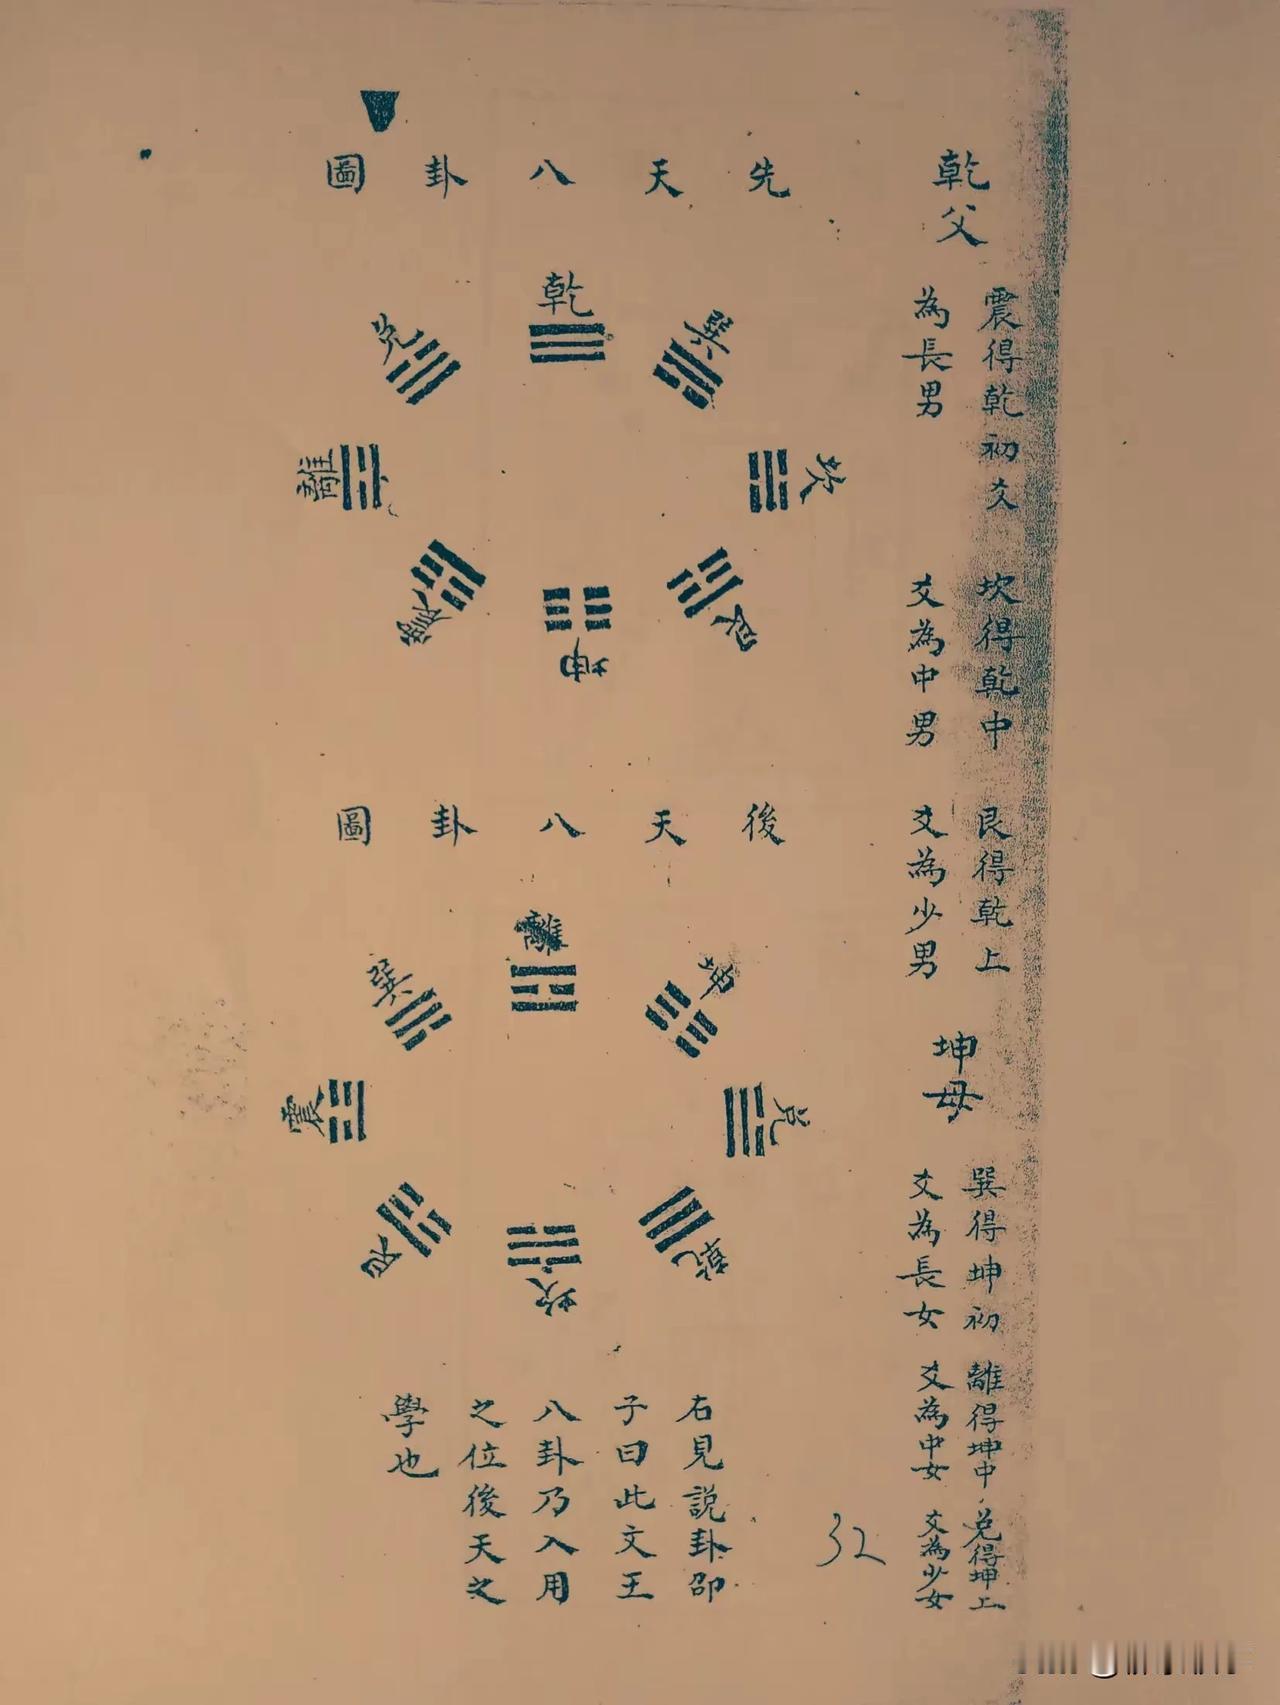 乾父
震得乾初爻
為長男
坎得乾中
爻為中男
艮得乾上
爻為少男
坤母
巽得坤初
爻為長女
離得坤中
爻為中女
兌得坤上
爻為少女
先天八卦圖
乾
兌
巽
離
坎
震
艮
坤
後天八卦圖
離
巽
坤
震
兌
艮
乾
坎
右見說卦邵
子曰此文王
八卦乃入用
之位後天之
學也
32